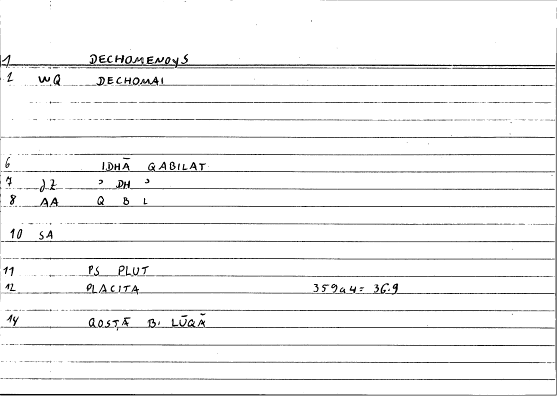 1 DECHOMENOYS
2 WQ DECHOMAI
6 IDHĀ QABILAT
7 JZ ʾ DH ʾ
8 AA Q B L
10 SA
11 PS PLUT
12 PLACITA 359a4 = 36.9
14 QOSṬĀ B. LŪQĀ